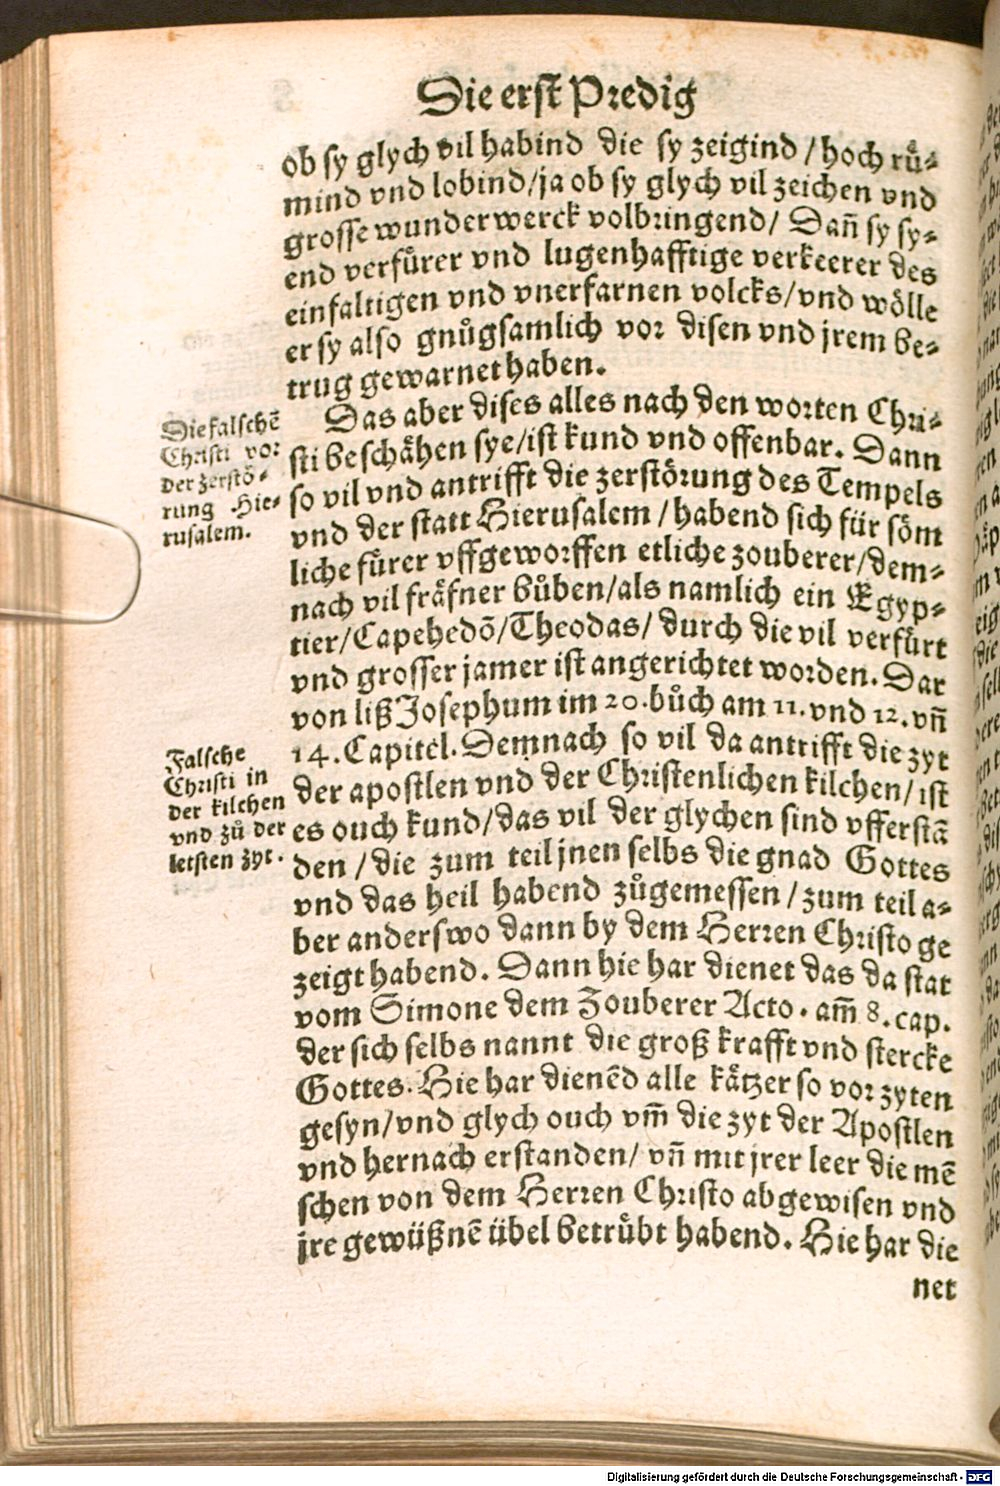 Die erst Predig
ob sy glych vil habind die sy zeigind / hoch ruͤ-
mind vnd lobind/ja ob sy glych vil zeichen vnd
grosse wunderwerck volbringend/ Dañ sy sy-
end verfuͤrer vnd lugenhafftige verkeerer des
einfaltigen vnd vnerfarnen volcks/vnd woͤlle
er sy also gnuͦgsamlich vor disen vnd jrem be-
trug gewarnet haben.
Das aber dises alles nach den worten Chri-
sti beschaͤhen sye/ist kund vnd offenbar. Dann
so vil vnd antrifft die zerstoͤrung des Tempels
vnd der statt Hierusalem /habend sich für soͤm
liche fuͤrer vffgeworffen etliche zouberer/dem-
nach vil fraͤfner buͦben/als namlich ein Egyp-
tier/Capehedō/Theodas/ durch die vil verfuͤrt
vnd grosser jamer ist angerichtet worden. Dar
von liß Josephum im 20.buͦch am 11.vnd 12.vñ
14.Capitel. Demnach so vil da antrifft die zyt
der apostlen vnd der Christenlichen kilchen/ist
es ouch kund/das vil der glychen sind vfferstā
den /die zum teil jnen selbs die gnad Gottes
vnd das heil habend zuͦgemessen /zum teil a-
ber anderswo dann by dem Herren Christo ge
zeigt habend. Dann hie har dienet das da stat
vom Simone dem Zouberer Acto. am̃ 8.cap.
der sich selbs nannt die groß krafft vnd stercke
Gottes. Hie har dienēd alle kaͤtzer so vor zyten
gesyn/vnd glych ouch vm̃ die zyt der Apostlen
vnd hernach erstanden/ vñ mit jrer leer die mē
schen von dem Herren Christo abgewisen vnd
jre gewüßnē übel betruͤbt habend. Hie har die
net
Die falschē
Christi vor
der zerstoͤ-
rung Hie-
rusalem.
Falsche
Christi in
der kilchen
vnd zuͦ der
letsten zyt.
Digitalisierung gefördert durch die Deutsche Forschungsgemeinschaft - DFG